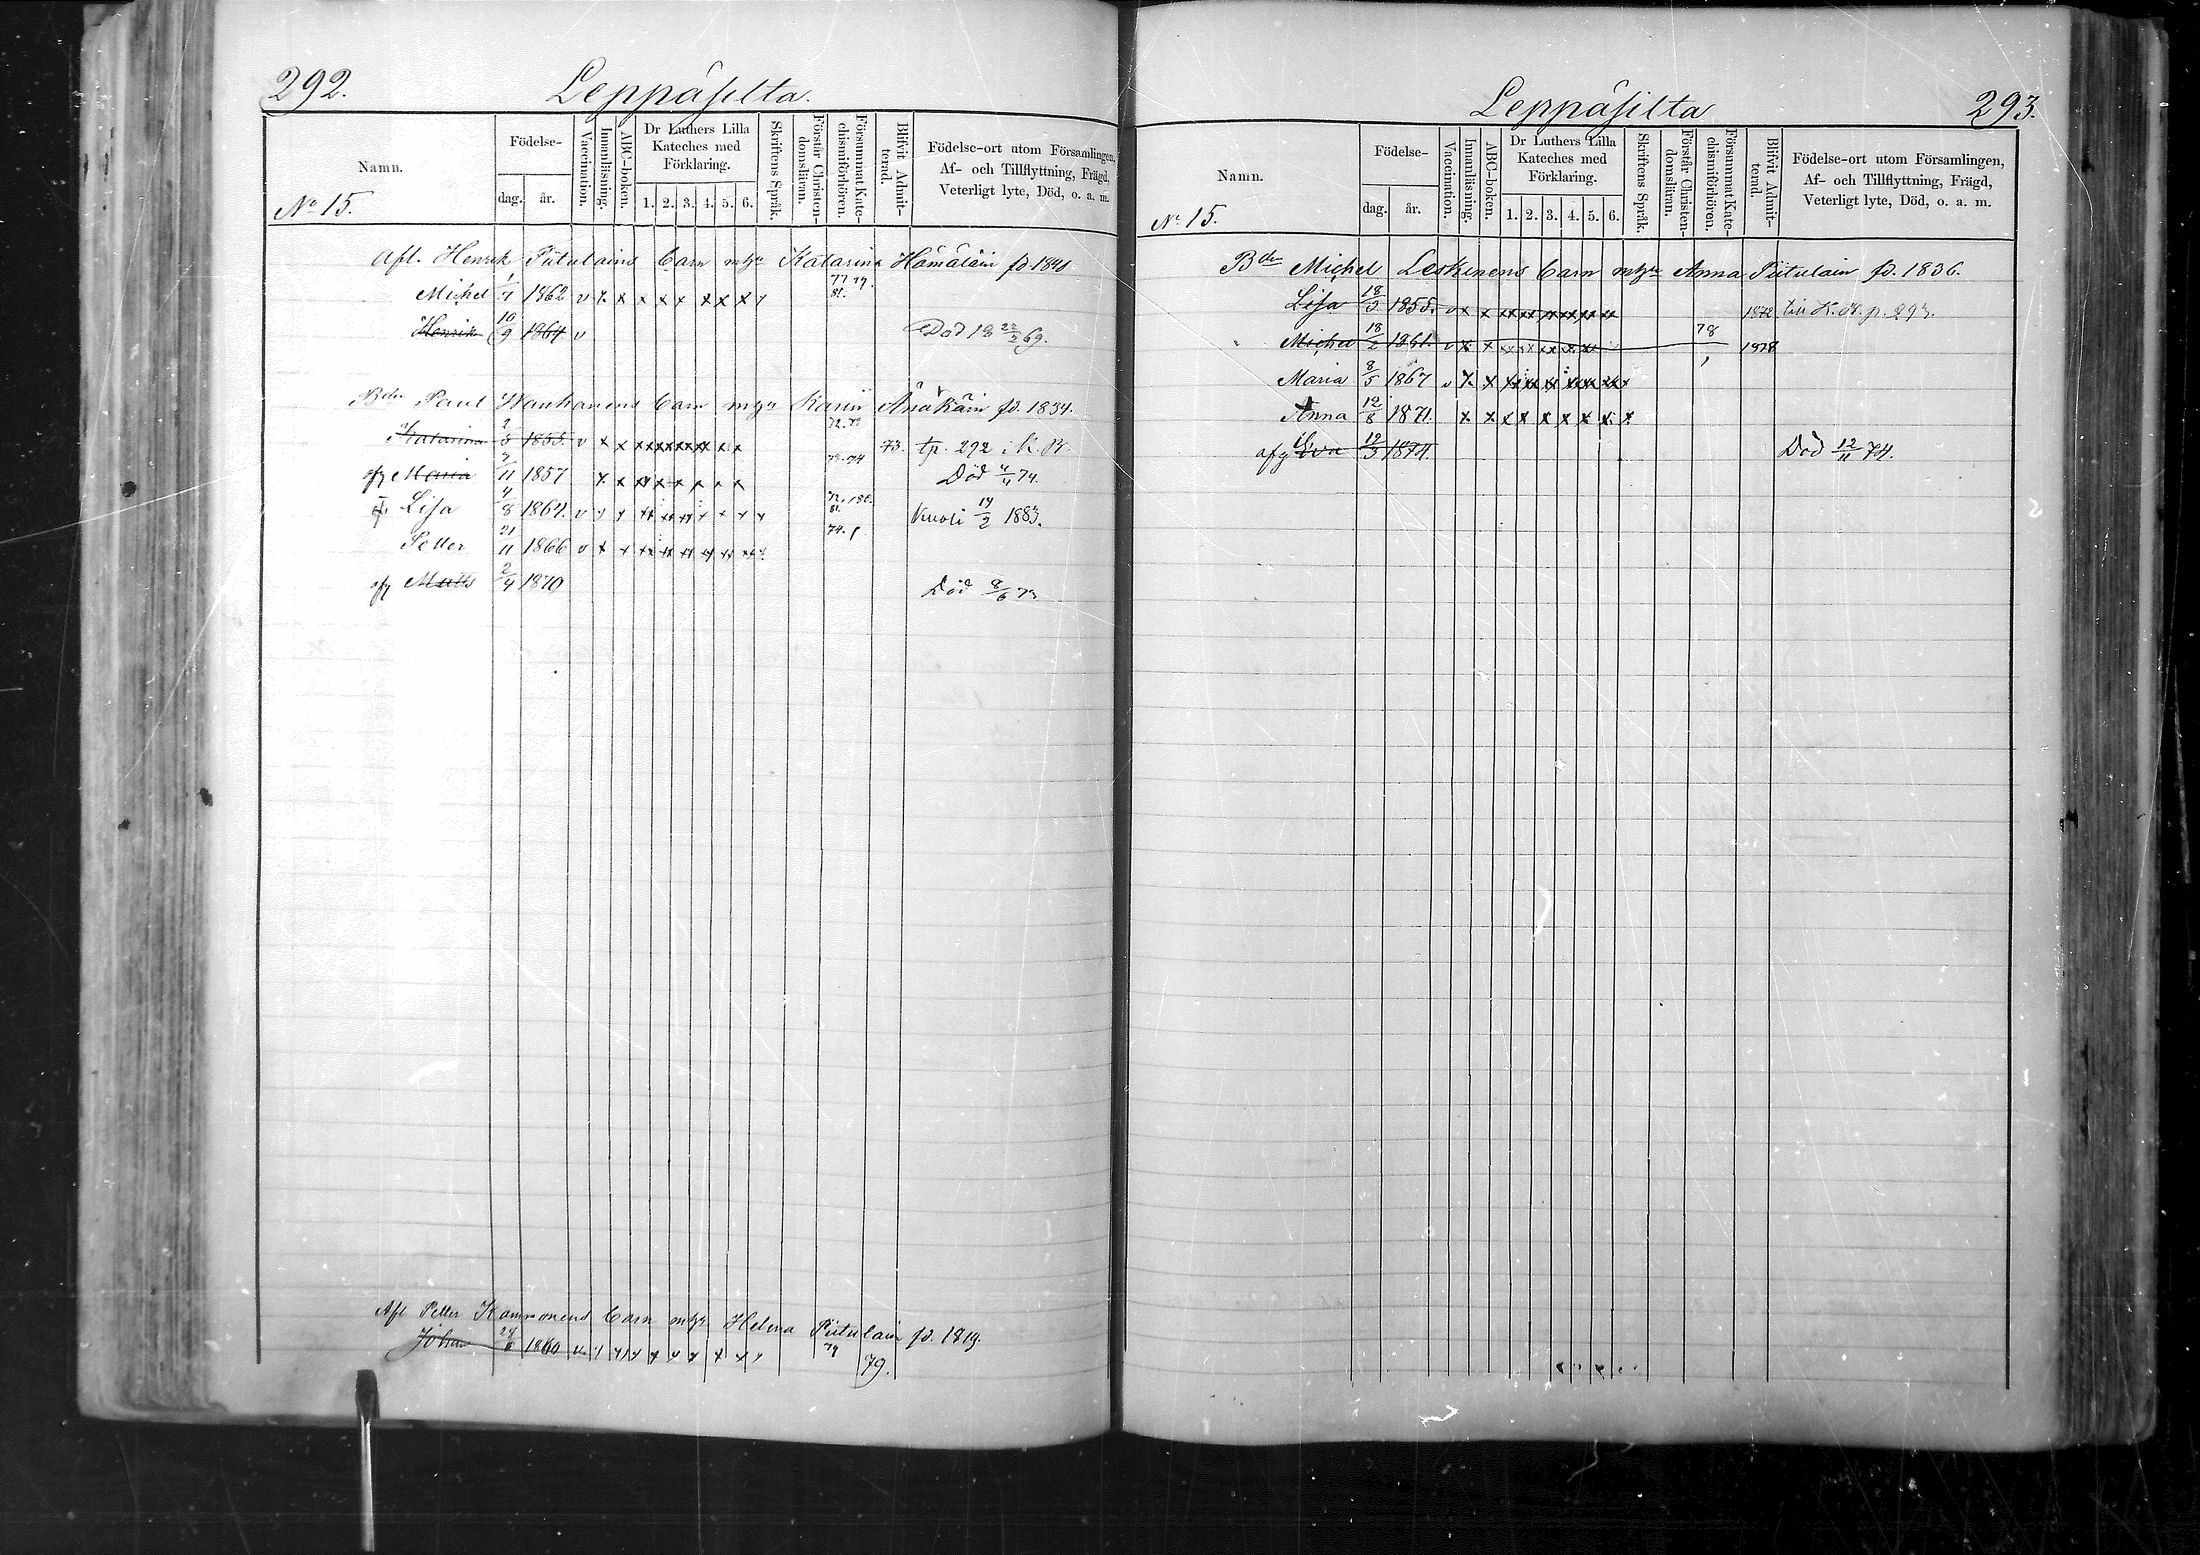 292.
Leppäsilta.
Namn.
Födelse-
dag. år.
Vaccination.
Innanläsning.
ABC-boken.
Dr Luthers Lilla Kateches med Förklaring.
1. 2. 3. 4. 5. 6.
Skriftens Språk.
Förstår Christendomsläran.
Försummat Katechismiförhören.
Blifvit Admitterad.
Födelse-ort utom Församlingen, Af- och Tillflyttning, Frägd, Veterligt lyte, Död, o. a. m.
No 15.
Afl. Henrik Piitulains barn m hr Katarina Hämäläin fd. 1840
Michel 1862 v x x x x x x x x 77 79. 81.
Henrik 10/9 1864 v Död 18 22/2 69.
Bdn Paul Wanhanens barn m hr Karin fd. 1834.
Katarina 2/5 1855 v x x 72. 73. tp. 292 i K. B.
afg Maria 11 1857 x x 74 Död 4/4 74.
Lisa 4/8 1864. v 81. Kuoli 14/2 1883.
Petter 21/11 1866 v x x 74.
afg Matts 2/4 1870 Död 8/6 73
Afl Petter Kammonens barn m hr Helena Piitulain fd. 1819.
Johan 1860 79 79.
293.
Leppäsilta
Namn.
Födelse-
dag. år.
Vaccination.
Innanläsning.
ABC-boken.
Dr Luthers Lilla Kateches med Förklaring.
1. 2. 3. 4. 5. 6.
Skriftens Språk.
Förstår Christendomsläran.
Försummat Katechismiförhören.
Blifvit Admitterad.
Födelse-ort utom Församlingen, Af- och Tillflyttning, Frägd, Veterligt lyte, Död, o. a. m.
No 15.
Bdn Michel Leskinens barn m hr Anna Piitulain fd. 1836.
Lisa 18/3 1855. v x x 1872 till K. B. p. 293.
Michel 18/2 1861. v x x 78 1878
Maria 8/5 1867 v x x
Anna 12/8 1871. x x x x x x x x x
afg Eva 12/3 1874. Död 12/11 74.